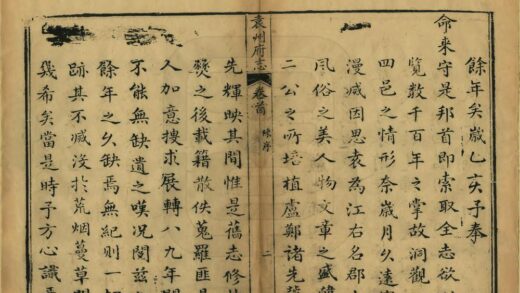 餘年矣歲乙亥予奉
命来守是邦首即索取全志欲
覽数千百年之掌故洞觀
四邑之情形奈歲月久遠
漫滅因思袁為江右名郡
風俗之美人物文章之盛韓
二公之所培植盧鄭諸先
袁州府志
卷首
序
二
先輝映其間惟是舊志修
燹之後載籍散佚蒐羅匪
人加意搜求展轉八九年間
不能無缺遺之嘆况閱茲
餘年之久缺焉無紀則一
跡其不滅没於荒烟蔓草
幾希矣當是時予方心識